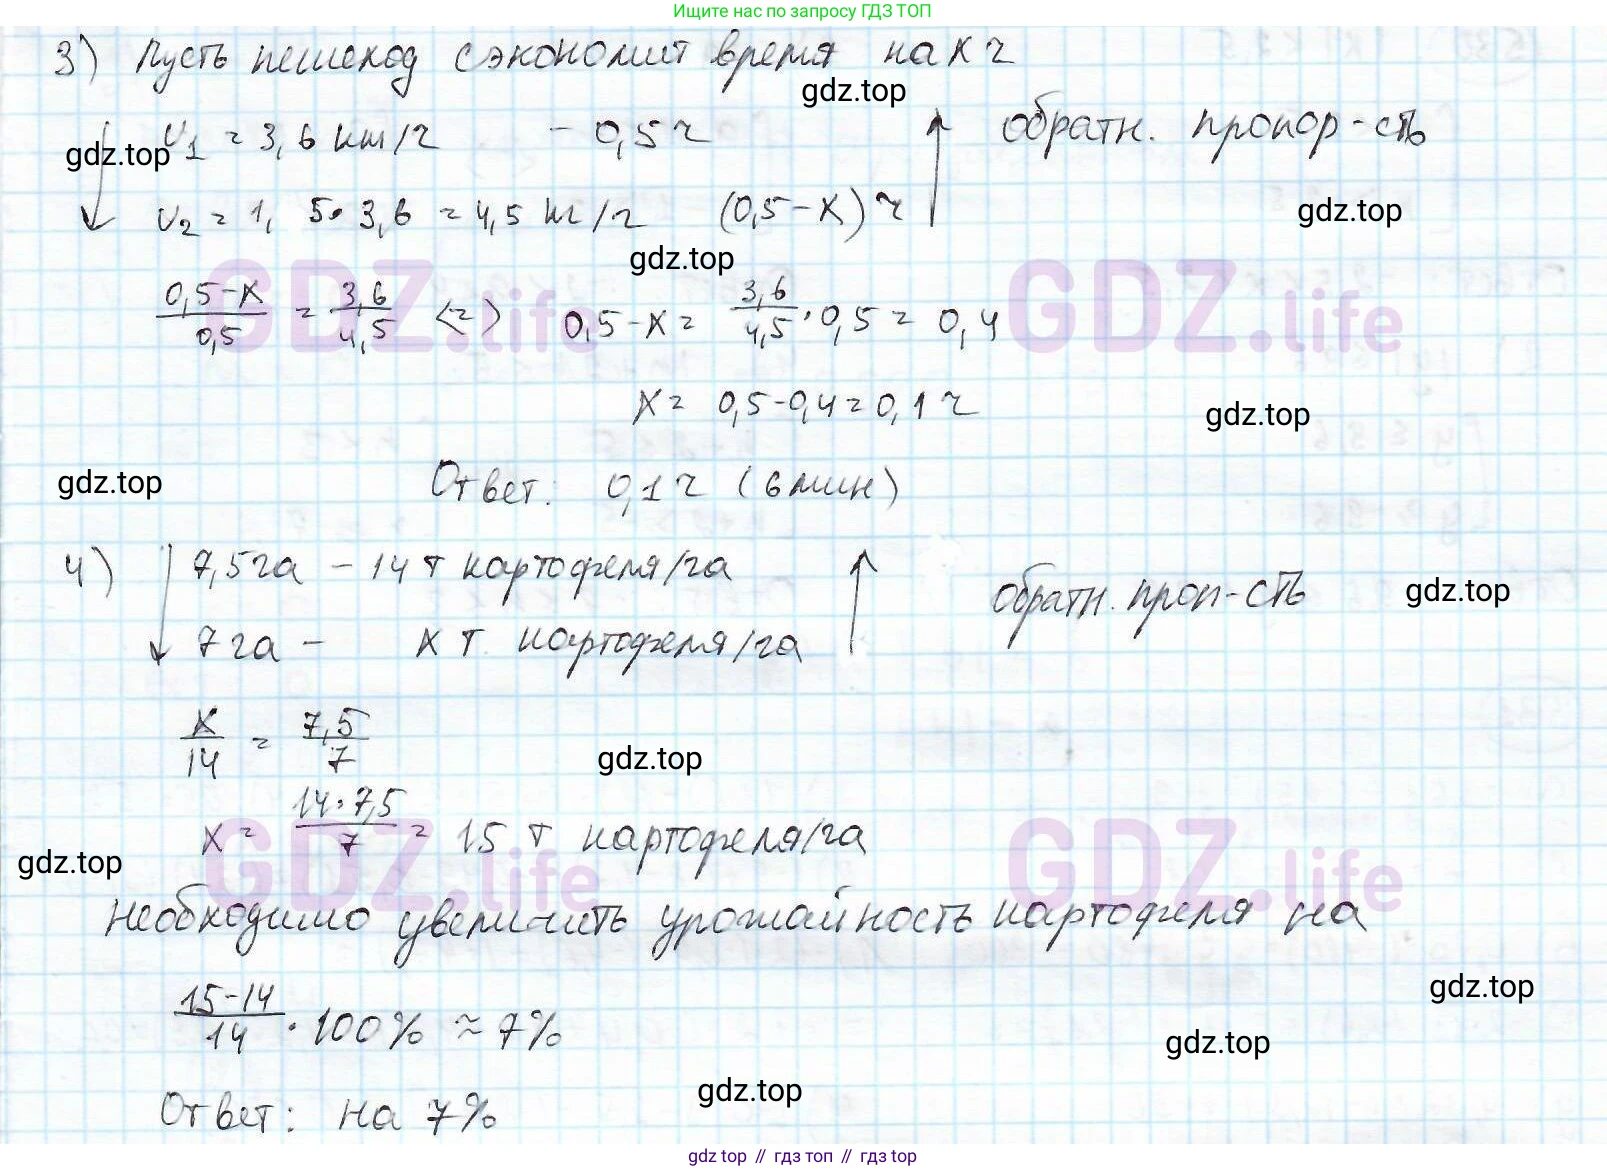 Ищите нас по запросу ГДЗ ТОП
3) Пусть пешеход сэкономит время на x ч
gdz.top
v₁ = 3,6 км/ч – 0,5 ч обратн. пропор-сть
gdz.top
v₂ = 1, 5·3,6 = 4,5 кг/ч (0,5-x) ч
gdz.top
gdz.top
GDZ.life GDZ.life
(0,5-x)/0,5 = 3,6/4,5 <=> 0,5-x = 3,6/4,5 · 0,5 = 0,4
x = 0,5-0,4 = 0,1 ч
gdz.top
gdz.top
Ответ: 0,1 ч (6 мин)
4) 7,5 га – 14 т картофеля/га
обратн. проп-сть gdz.top
7 га – x т картофеля/га
x/14 = 7,5/7
gdz.top
x = 14·7,5/7 = 15 т картофеля/га
gdz.top
GDZ.life GDZ.life
Необходимо увеличить урожайность картофеля на
gdz.top
(15-14)/14 · 100% ≈ 7%
gdz.top
gdz.top
Ответ: на 7%
gdz top // гдз топ // gdz top